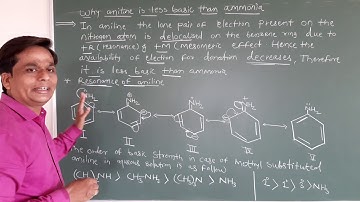 Why aniline is less basic than ammonia
⇒ In aniline the lone pair of electron present on the
nitrogen atom is delocalised on the benzene ring due to
+R (resonance) & +M (mesomeric effect Hence the
availability of electron for donation decreases, Therefore
it is less basic than ammonia
+ Resonance of aniline
NH₂ NH₂ NH₂ NH₂ NH₂
I II III IV V
The order of basic strength in case of methyl substituted
aniline in aqueous solution is as follow
(CH₃)₂NH > CH₃NH₂ > (CH₃)₃N > NH₃
2° > 1° > 3° > NH₃